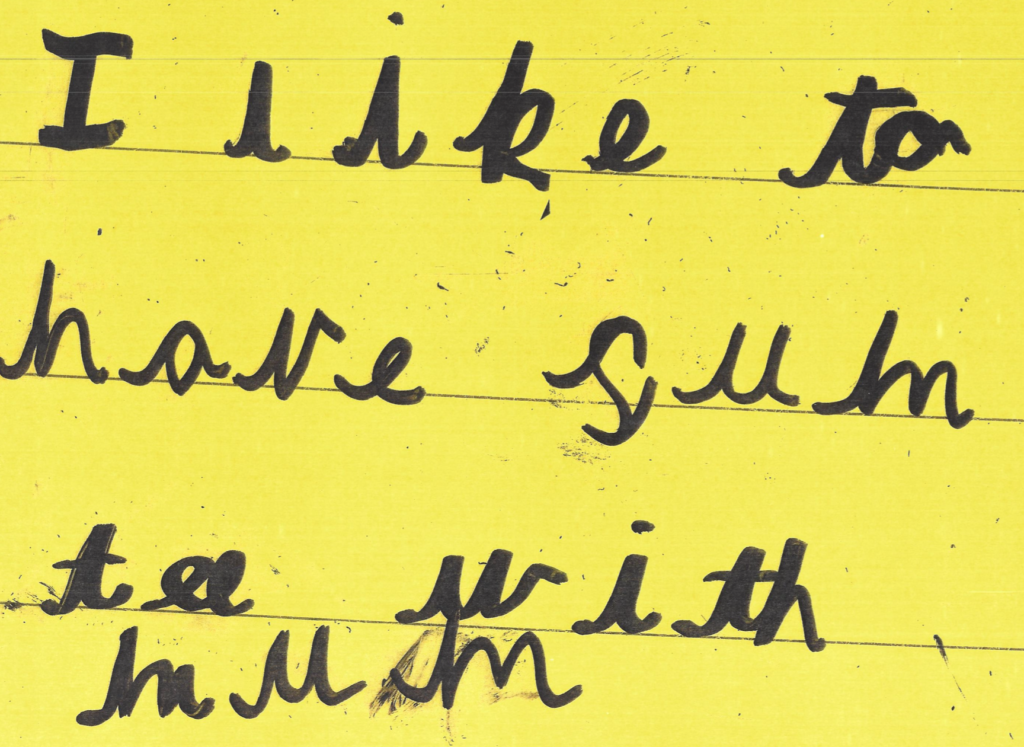 I like to
have gum
tea with
mum